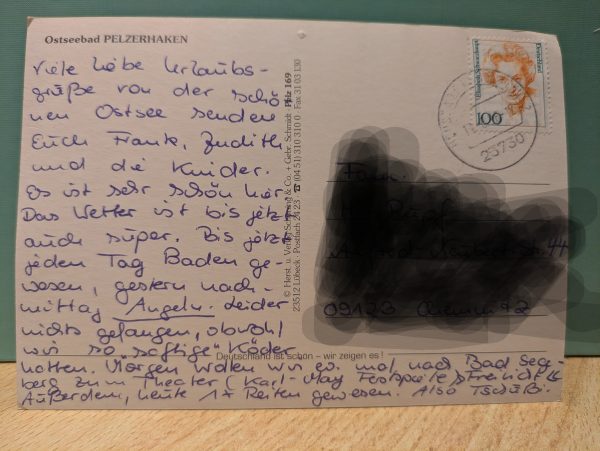 Ostseebad PELZERHAKEN
Viele liebe Urlaubs-
grüße von der schö-
nen Ostsee senden
Euch Frank, Judith
und die Kinder.
Es ist sehr schön hier.
Das Wetter ist bis jetzt
auch super. Bis jetzt
jeden Tag Baden ge-
wesen, gestern nach-
mittag Angeln. Leider
nichts gefangen, obwohl
wir so „saftige" Köder
hatten. Morgen wollen wir ev. mal nach Bad Sege-
berg zum Theater (Karl-May Festspiele) Freilicht
Außerdem, heute 1x Reiten gewesen. Also Tschüß!
Deutschland ist schön – wir zeigen es!
© Herst. u. Verlag Schöning & Co. + Gebr. Schmidt Pelz 169
23512 Lübeck · Postfach 24 23 · ☎ (04 51) 310 310 0 · Fax 31 03 130
Deutschland
Elisabeth Schwarzhaupt
100
23730